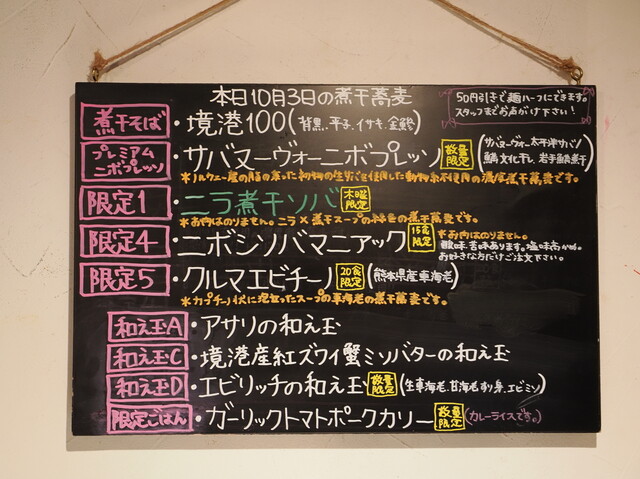 本日10月3日の煮干蕎麦
50円引きで麺ハーフにできます。
スタッフまでお声がけ下さい!
煮干そば・境港100(背黒、平子、イサキ、金鯵)
プレミアムニボプレッソ・サバヌーヴォーニボプレッソ 数量限定 (サバヌーヴォー太平洋サバ/鯖文化干し、岩手鯵煮干)
*ノルウェー産の脂の乗った初物の生サバを使用した動物系不使用の濃厚煮干蕎麦です。
限定1・ニラ煮干ソバ 木曜限定
*お肉はのりません。ニラ×煮干スープの緑色の煮干蕎麦です。
限定4・ニボシソバマニアック 15食限定 *お肉はのりません。
酸味、苦味あります。塩味高かめ。
お好きな方だけご注文下さい。
限定5・クルマエビチーノ 20食限定 (熊本県産車海老)
*カプチーノ状に泡立ったスープの車海老の煮干蕎麦です。
和え玉A・アサリの和え玉
和え玉C・境港産紅ズワイ蟹ミソバターの和え玉
和え玉D・エビリッチの和え玉 数量限定 (生車海老、甘海老すり身、エビミソ)
限定ごはん・ガーリックトマトポークカリー 数量限定 (カレーライスです。)